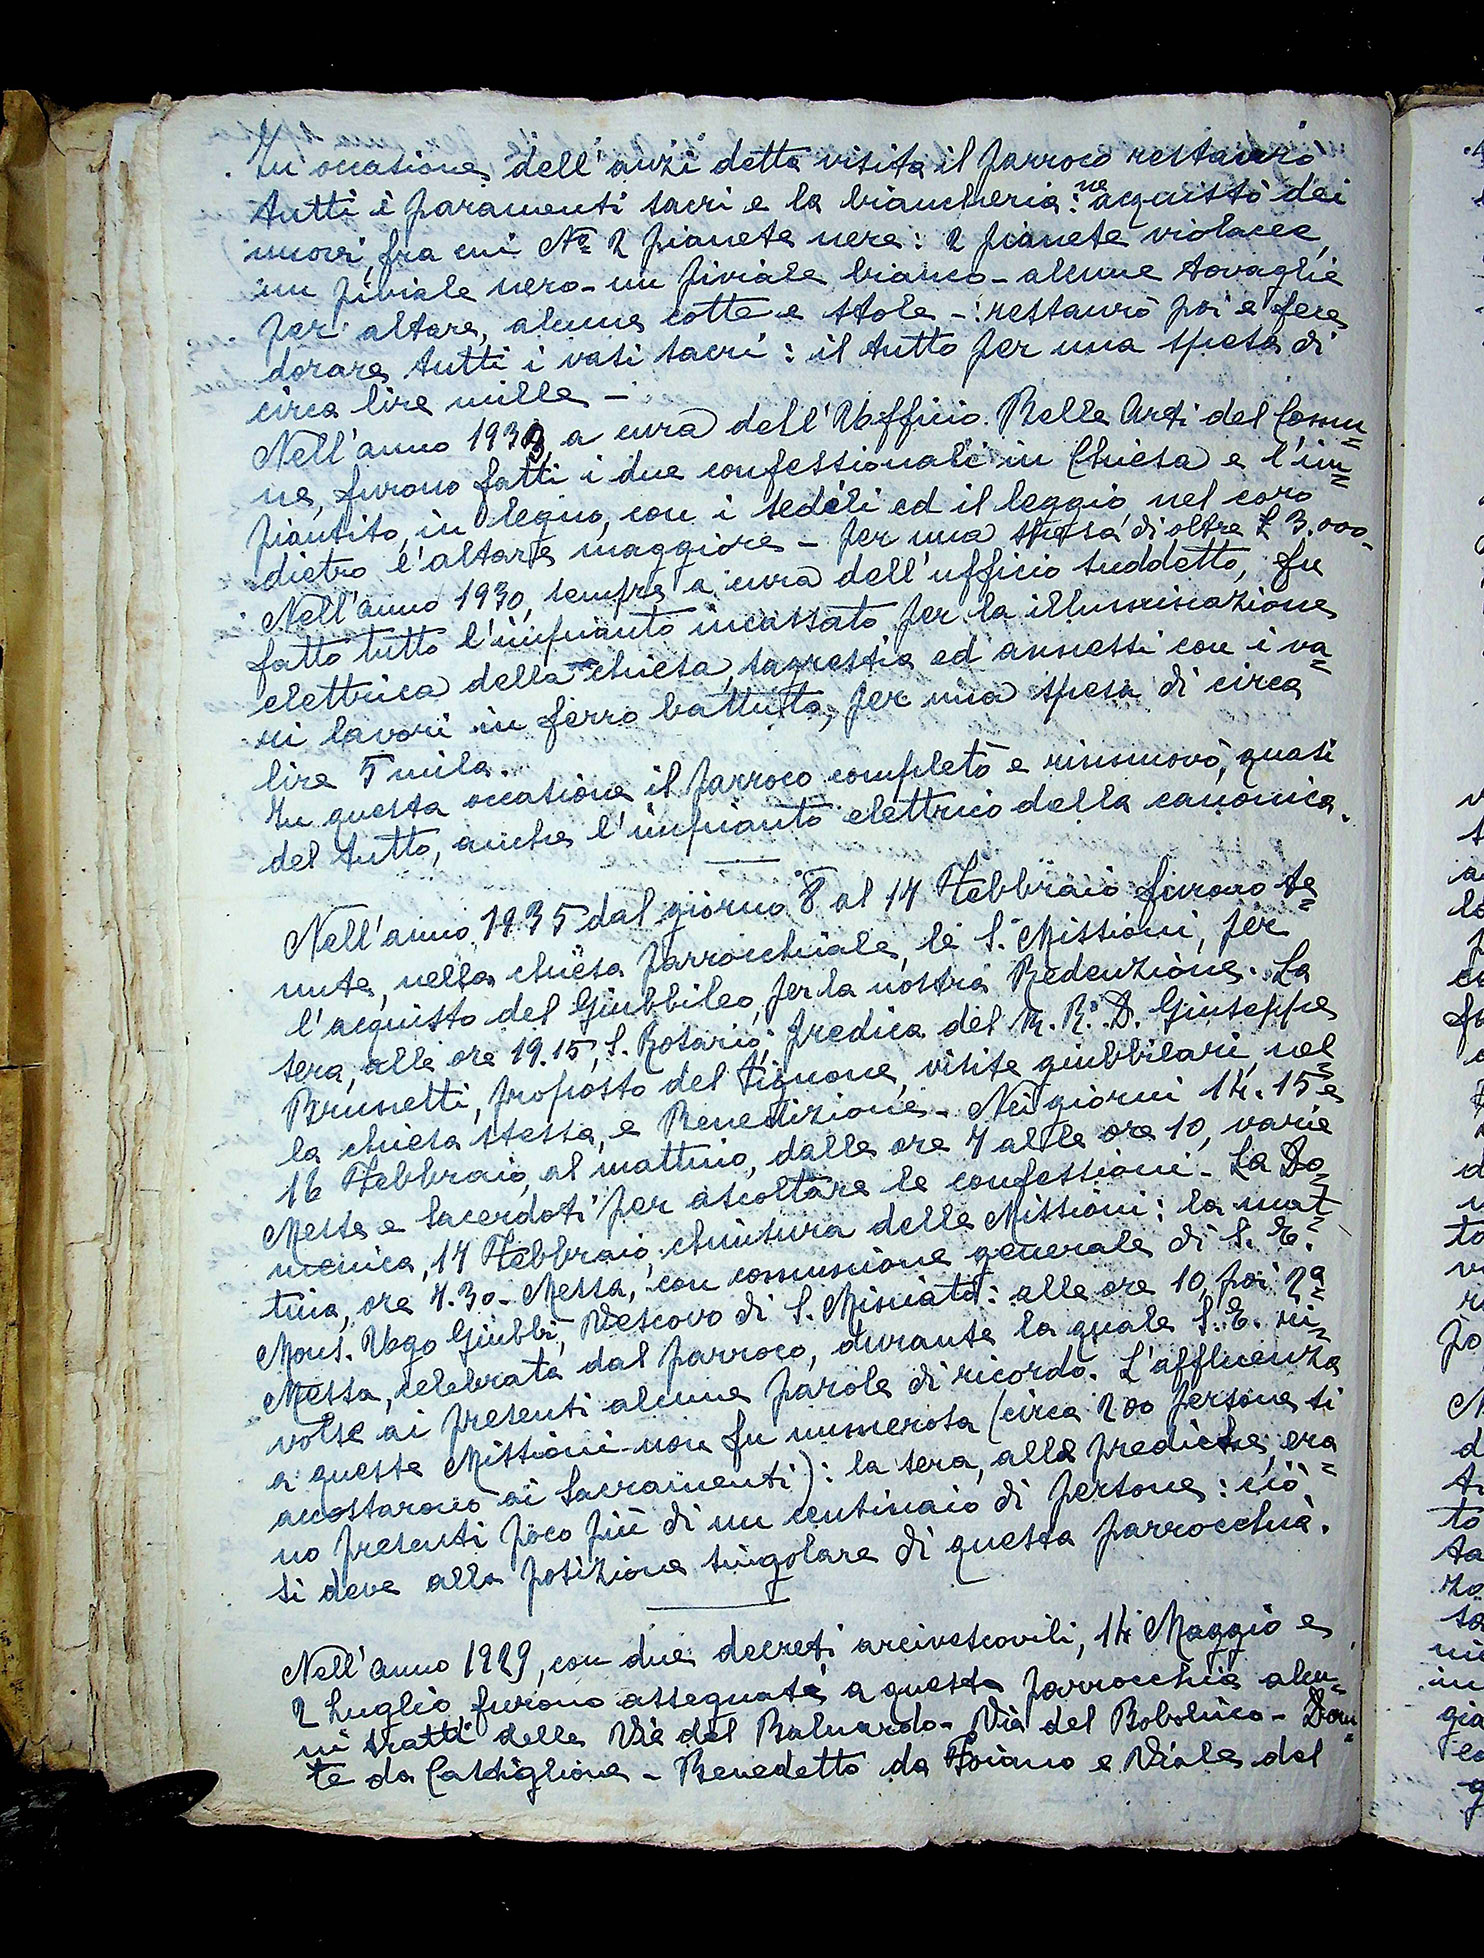 In occasione dell'anzi detta visita il parroco restaurò
tutti i paramenti sacri e la biancheria: ne acquistò dei
nuovi, fra cui No 2 pianete nere: 2 pianete violacee,
un piviale nero - un piviale bianco - alcune tovaglie
per altare, alcune cotte e stole -: restaurò poi e fece
dorare tutti i vasi sacri: il tutto per una spesa di
circa lire mille -
Nell'anno 1933, a cura dell'Ufficio Belle Arti del Comu=
ne, furono fatti i due confessionali in Chiesa e l'im=
piantito, in legno, con i sedili ed il leggio nel coro
dietro l'altare maggiore - per una spesa di oltre £ 3.000-
Nell'anno 1930, sempre a cura dell'ufficio suddetto, fu
fatto tutto l'impianto incassato per la illuminazione
elettrica della chiesa, sagrestia ed annessi con i va=
ri lavori in ferro battuto, per una spesa di circa
lire 5 mila.
In questa occasione il parroco completò e rinnuovò, quasi
del tutto, anche l'impianto elettrico della canonica.
Nell'anno 1935 dal giorno 8 al 17 Febbraio furono te=
nute, nella chiesa parrocchiale, le S. Missioni, per
l'acquisto del Giubbileo, per la nostra Redenzione. La
sera, alle ore 19.15, S. Rosario, predica del M. R. D. Giuseppe
Brunetti, proposto del Pignone, visite giubbilari, nel=
la chiesa stessa, e Benedizione - Nei giorni 14. 15 e
16 Febbraio, al mattino, dalle ore 7 alle ore 10, varie
Messe e Sacerdoti per ascoltare le confessioni - La Do=
menica, 17 Febbraio, chiusura delle Missioni: la mat=
tina, ore 7.30 - Messa, con comunione generale di S. E.
Mons. Ugo Giubbi, Vescovo di S. Miniato: alle ore 10, poi 2a
Messa, celebrata dal parroco, durante la quale S. E. ri=
volse ai presenti alcune parole di ricordo. L'affluenza
a queste Missioni non fu numerosa (circa 200 persone si
accostarono ai Sacramenti): la sera, alle prediche, era=
no presenti poco più di un centinaio di persone: ciò
si deve alla posizione singolare di questa parrocchia.
Nell'anno 1929, con due decreti arcivescovili, 14 Maggio e
2 Luglio furono assegnati a questa parrocchia alcu=
ni tratti delle Vie del Baluardo - Via del Bobolino - Dan=
te da Castiglione - Benedetto da Foiano e Viale del